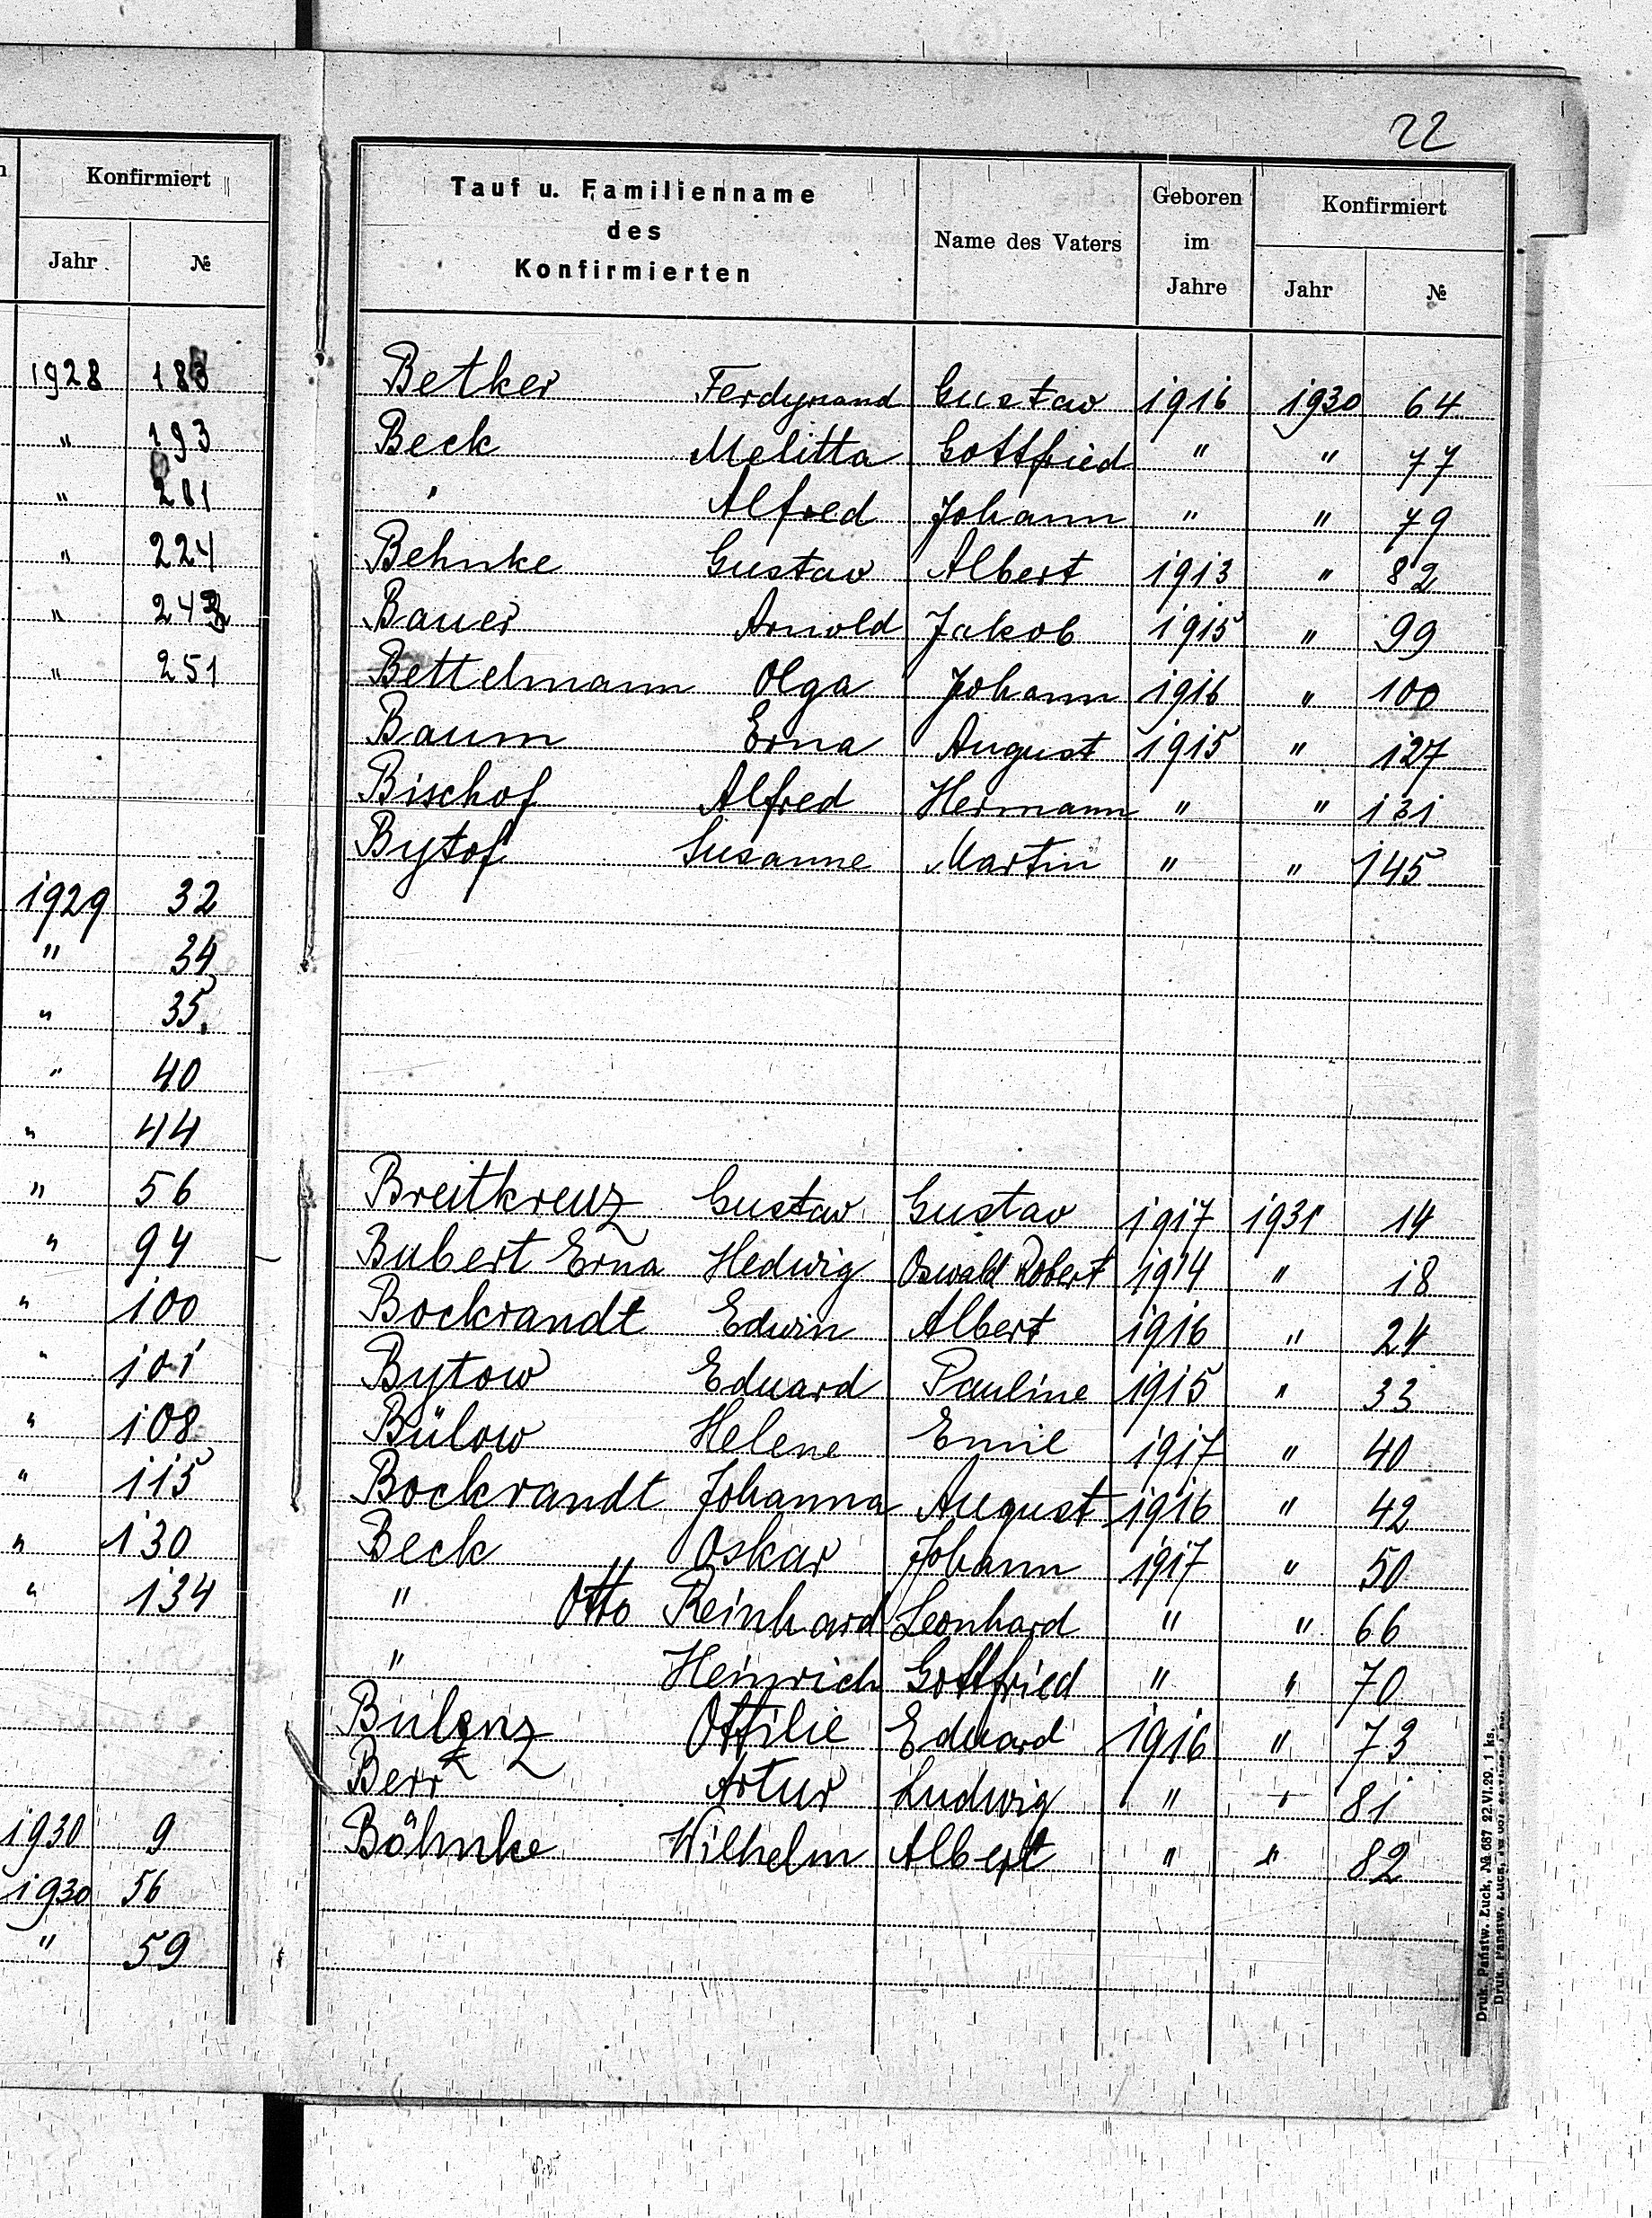 22
Konfirmiert
Jahr №
1928 183
" 193
" 201
" 224
" 243
" 251
1929 32
" 34
" 35
" 40
" 44
" 56
" 94
" 100
" 101
" 108
" 115
" 130
" 134
1930 9
1930 56
" 59
Tauf u. Familienname des Konfirmierten Name des Vaters Geboren im Jahre Konfirmiert
Jahr №
Betker Ferdynand Gustav 1916 1930 64
Beck Melitta Gottfried " " 77
" Alfred Johann " " 79
Behnke Gustav Albert 1913 " 82
Bauer Arnold Jakob 1915 " 99
Bettelmann Olga Johann 1916 " 100
Baum Erna August 1915 " 127
Bischof Alfred Hermann " " 131
Bytof Susanne Martin " " 145
Breitkreuz Gustav Gustav 1917 1931 14
Bubert Erna Hedwig Oswald Robert 1914 " 18
Bockrandt Edwin Albert 1916 " 24
Bytow Eduard Pauline 1915 " 33
Bülow Helene Emil 1917 " 40
Bockrandt Johanna August 1916 " 42
Beck Oskar Johann 1917 " 50
" Otto Reinhard Leonhard " " 66
" Heinrich Gottfried " " 70
Ottilie Eduard 1916 " 73
Artur Ludwig " " 81
Böhnke Wilhelm Albert " " 82
Druk. Państw. Łuck, № 687 22.VI.29. 1 ks.